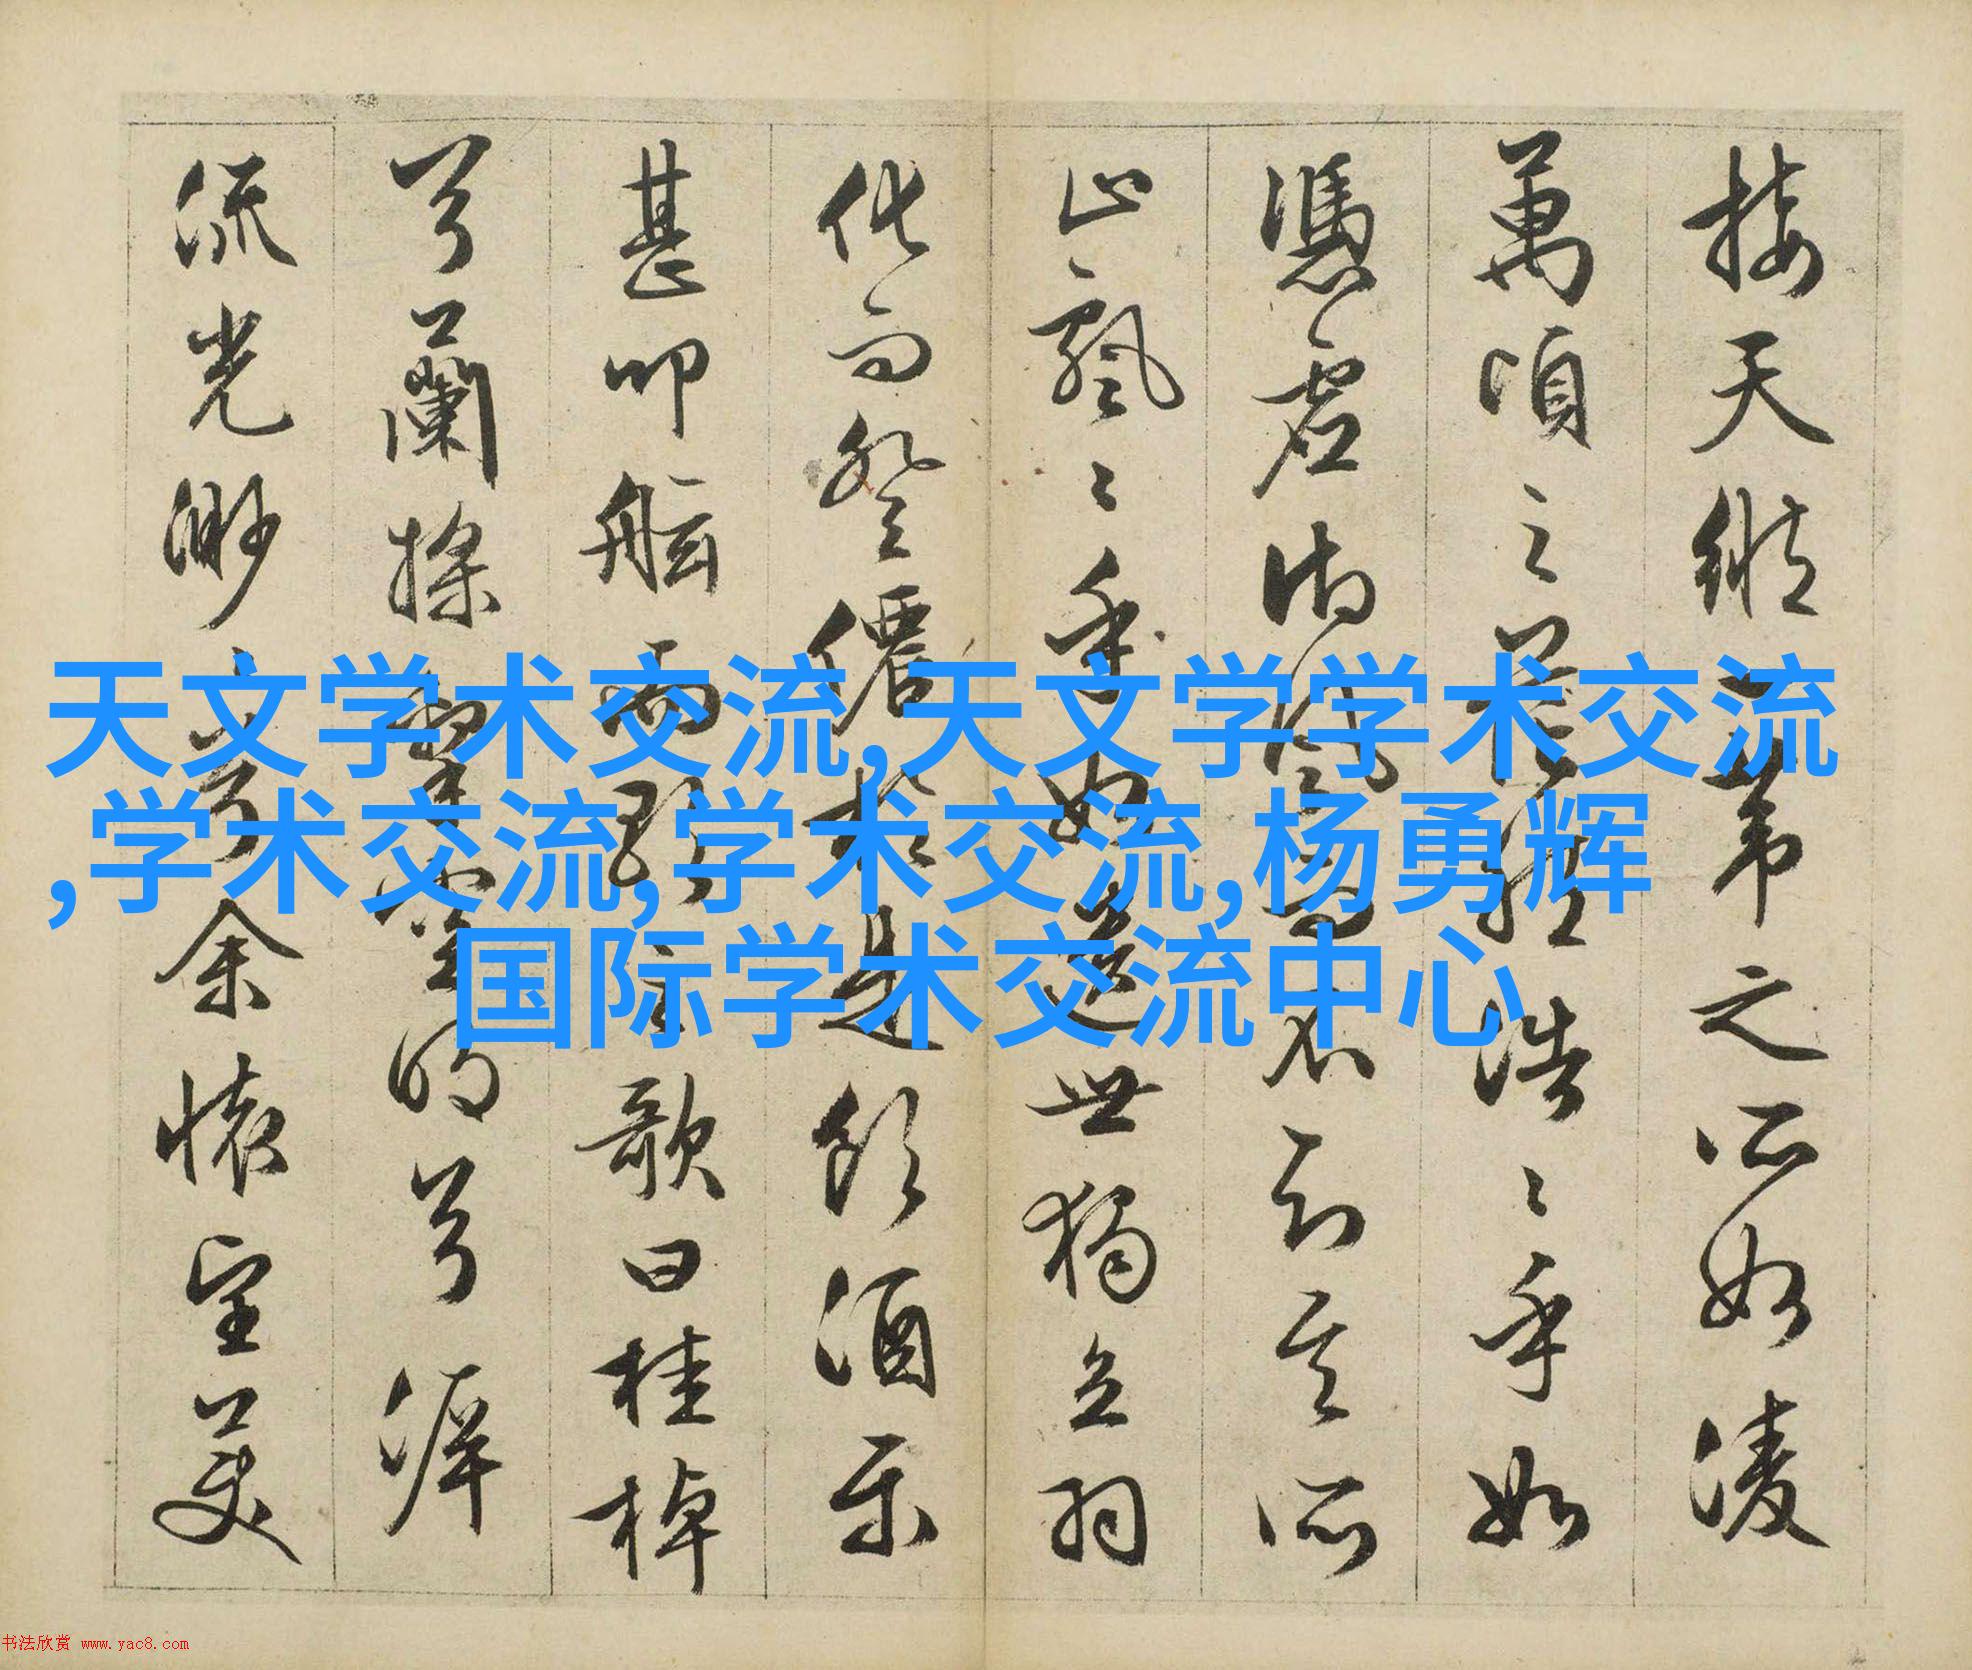 接天縱一葦之所如凌
萬頃之茫然浩〻乎如
憑虛御風而不知其所
止飄〻乎如遺世獨立羽
化而登僊於是飲酒樂
甚叩舷而歌之歌曰桂棹
兮蘭槳擊空明兮泝
流光渺〻兮余懷望美
天文学术交流,天文学学术交流
,学术交流,学术交流,杨勇辉
国际学术交流中心
书法欣赏 www.yac8.com